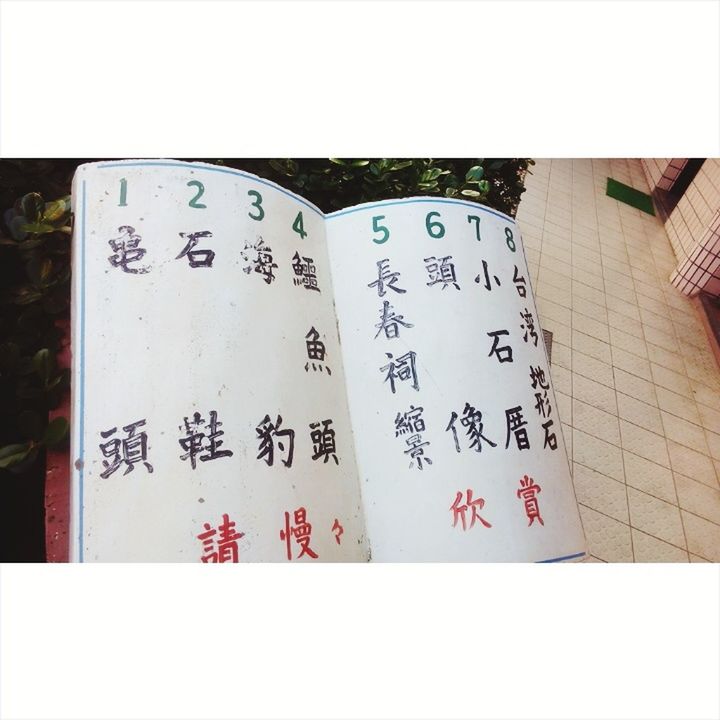 1 龜頭
2 石鞋
3 海豹
4 鱷魚頭
5 長春祠縮景
6 頭像
7 小石厝
8 台灣地形石
請慢々欣賞